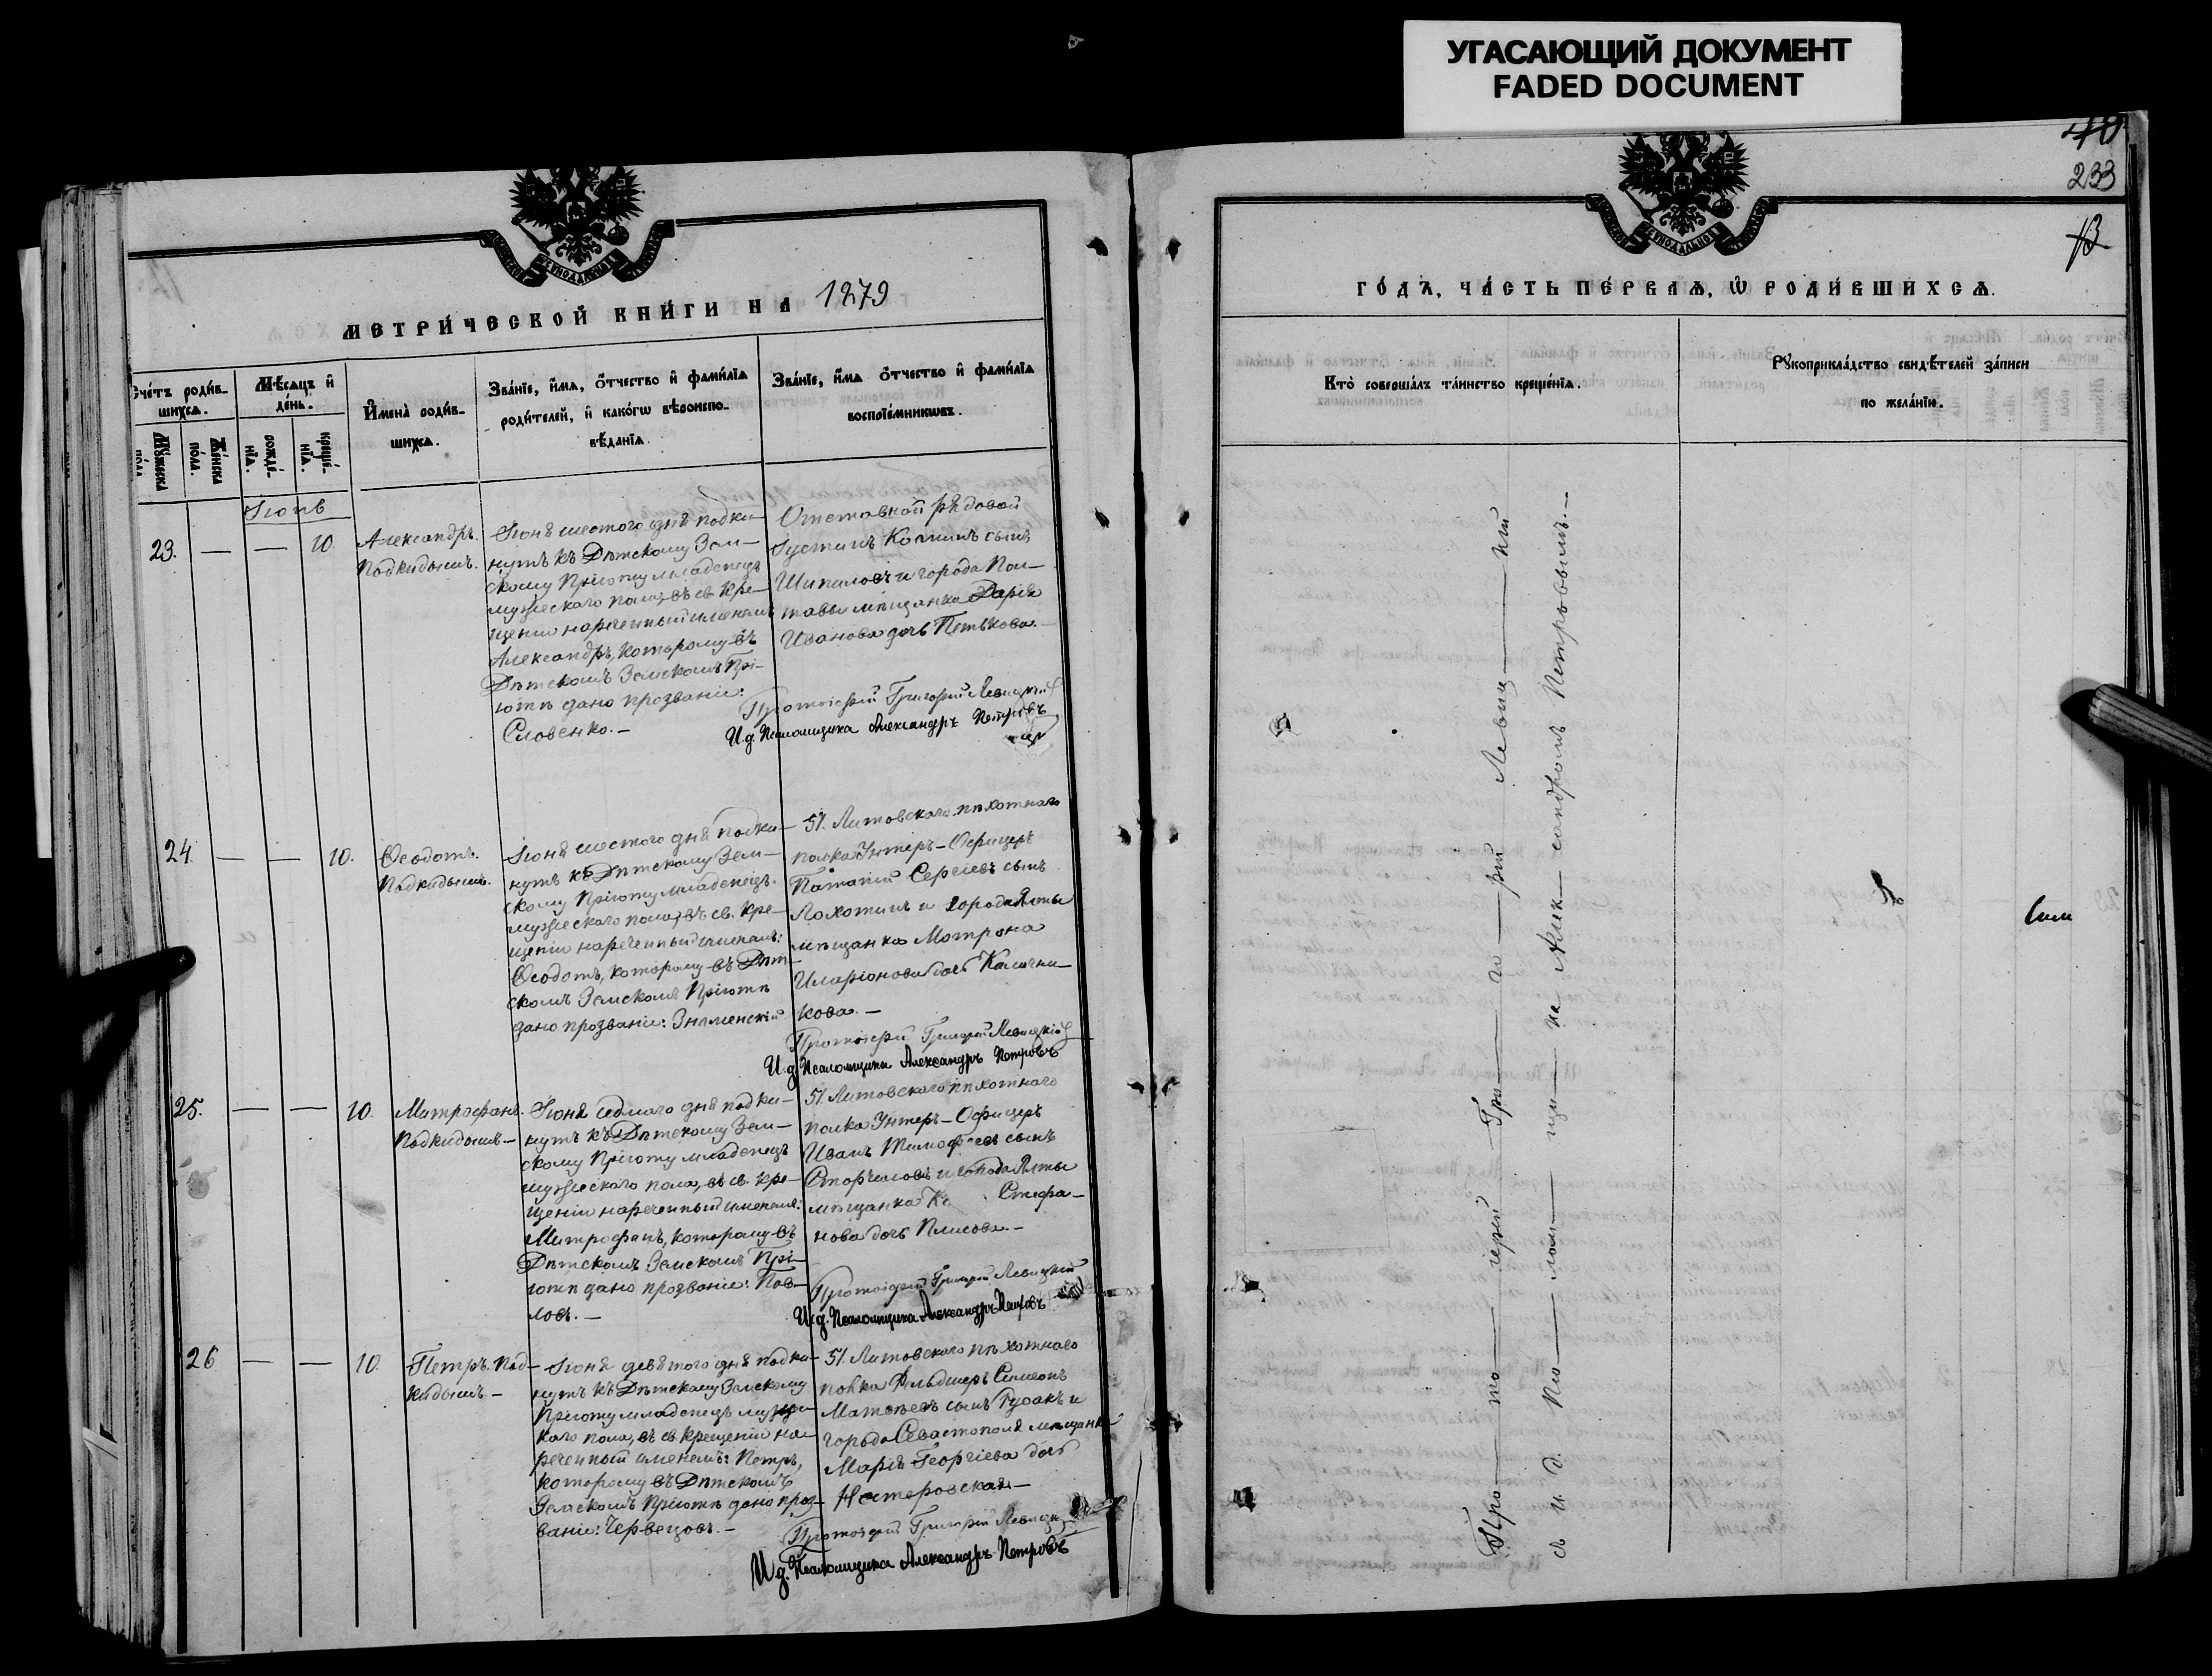 УГАСАЮЩИЙ ДОКУМЕНТ
FADED DOCUMENT
МЕТРИ́ЧЕСКОЙ КНИ́ГИ НА 1879
Сче́тъ роди́в-
шихсѧ.
Мꙋ́жеска
по́ла.
Же́нска
по́ла.
Мѣ́сѧцъ и҆
де́нь.
рожде́-
нїѧ.
креще́-
нїѧ.
И҆мена̀ роди́в-
шихсѧ.
Зва́нїе, и҆́мѧ, ѻ҆́тчество и҆ фами́лїѧ
роди́телей, и҆ како́гѡ вѣроиспо-
вѣ́данїѧ.
Зва́нїе, и҆́мѧ ѻ҆́тчество и҆ фами́лїѧ
воспрїе́мникѡвъ.
Іюнь
23. — — 10.
Александръ.
Подкидышъ.
Іюня шестого дня подки-
нутъ къ Дѣтскому Зем-
скому Пріюту младенецъ
мужескаго пола, въ св. кре-
щеніи нареченный именемъ
Александръ, которому въ
Дѣтскомъ Земскомъ Прі-
ютѣ дано прозваніе:
Словенко. —
Отставной рядовой
Іустинъ Козминъ сынъ
Шипиловъ и города Пол-
тавы мѣщанка Дарія
Иванова дочь Петькова. —
Протоіерей Григорій Левицкій
И. д. Псаломщика Александръ Петровъ
24. — — 10.
Ѳеодотъ.
Подкидышъ.
Іюня шестого дня подки-
нутъ къ Дѣтскому Зем-
скому Пріюту младенецъ
мужескаго пола, въ св. кре-
щеніи нареченный именемъ:
Ѳеодотъ, которому въ Дѣт-
скомъ Земскомъ Пріютѣ
дано прозваніе: Знаменскій
51. Литовскаго пѣхотнаго
полка Унтеръ-Офицеръ
Патапій Сергіевъ сынъ
Лохотинъ и города Ялты
мѣщанка Мотрона
Иларіонова дочь Калачни-
кова. —
Протоіерей Григорій Левицкій
И. д. Псаломщика Александръ Петровъ
25. — — 10.
Митрофанъ.
Подкидышъ. —
Іюня седмаго дня подки-
нутъ къ Дѣтскому Зем-
скому Пріюту младенецъ
мужескаго пола, въ св. кре-
щеніи нареченный именемъ:
Митрофанъ, которому въ
Дѣтскомъ Земскомъ Прі-
ютѣ дано прозваніе: Пав-
ловъ. —
51. Литовскаго пѣхотнаго
полка Унтеръ-Офицеръ
Иванъ Тимофеевъ сынъ
Сторчиловъ и города Ялты
мѣщанка Стефа-
нова дочь Плисова. —
Протоіерей Григорій Левицкій
И. д. Псаломщика Александръ Петровъ
26 — — 10.
Петръ. Под-
кидышъ —
Іюня девятого дня подки-
нутъ къ Дѣтскому Земскому
Пріюту младенецъ мужес-
каго пола, въ св. крещеніи на-
реченный именемъ: Петръ,
которому въ Дѣтскомъ
Земскомъ Пріютѣ дано проз-
ваніе: Червецовъ. —
51. Литовскаго пѣхотнаго
полка Фельдшеръ Симеонъ
Матвѣевъ сынъ Гусакъ и
города Севастополя мѣщанка
Марія Георгіева дочь
Нестеровская —
Протоіерей Григорій Левицкій
И. д. Псаломщика Александръ Петровъ
40
233
13
ГО́ДЪ, ЧА́СТЬ ПЕ́РВАѦ, Ѡ҆ РОДИ́ВШИХСѦ.
Кто̀ соверша́лъ та́инство креще́нїѧ.
Рꙋкоприкла́дство свидѣ́телей за́писи
по жела́нїю.
Про — то — іерей — Гри — го — рій Левиц — кій
съ и. д. Пса — лом — щи — ка Алек — сандромъ Петровымъ. —